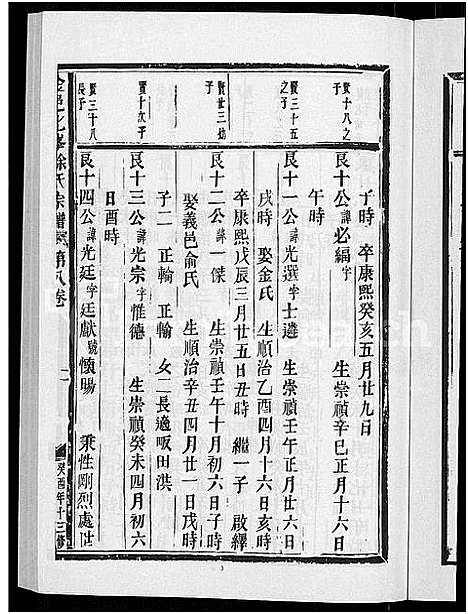 子時 卒康熙癸亥五月廿九日
賢十八之子
艮十公諱必編字 生崇禎辛巳正月十六日
午時
賢三十五之子
艮十一公諱光選字士遴 生崇禎壬午正月廿六日
戌時 娶金氏 生順治乙酉四月十六日亥時
卒康熙戊辰三月廿五日丑時 繼一子 啟繹
賢廿三幼子
艮十二公諱一傑 生崇禎壬午十月初六日子時
娶義邑俞氏 生順治辛丑四月廿一日戌時
子二 正翰 正輸 女二長適畈田洪
賢十次子
艮十三公諱光宗字惟德 生崇禎癸未四月初六
日酉時
賢三十八長子
艮十四公諱光廷字廷獻號懷暘 秉性剛烈處世
徐氏宗譜 第八卷
二
癸酉年十三修